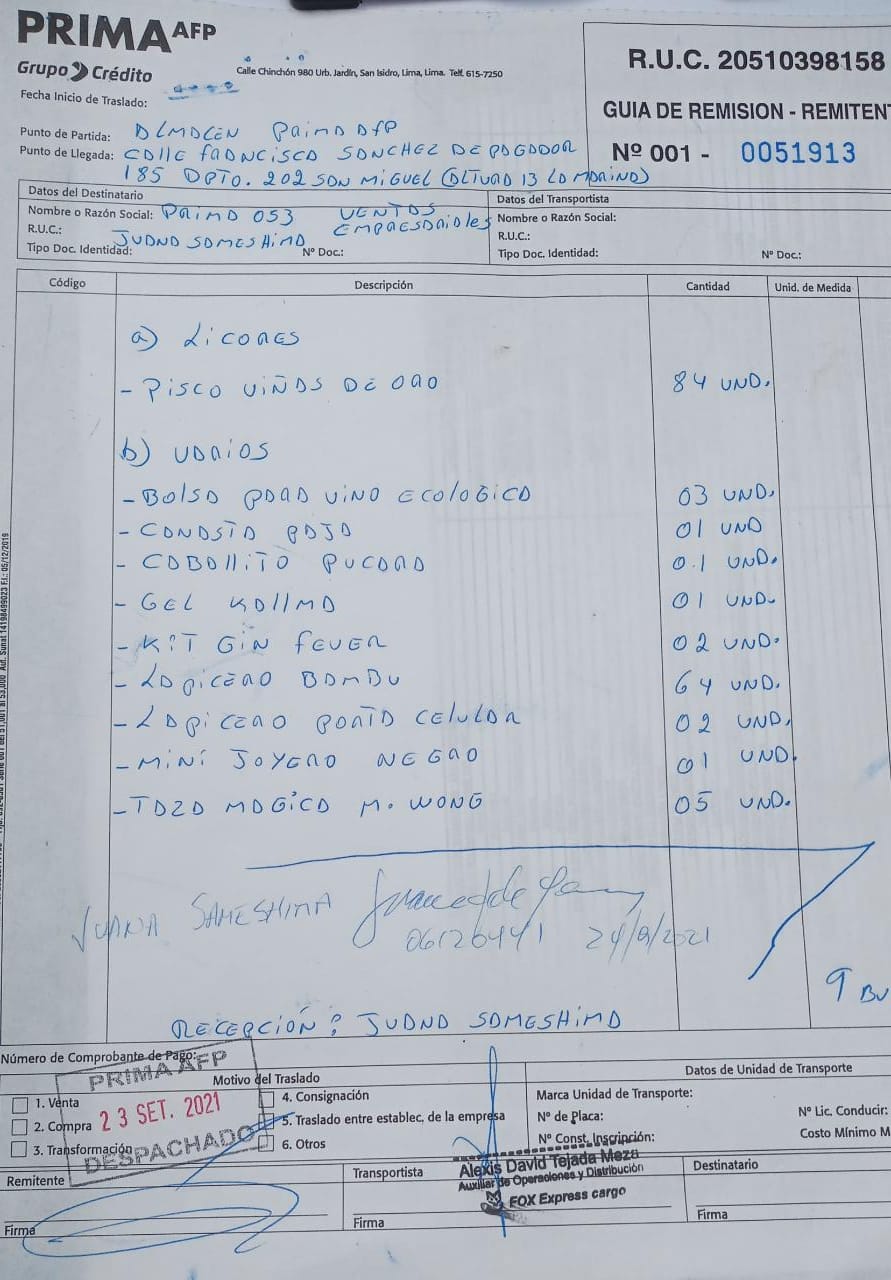 PRIMA AFP
Grupo Crédito
Calle Chinchón 980 Urb. Jardín, San Isidro, Lima, Lima. Telf. 615-7250
R.U.C. 20510398158
GUIA DE REMISION - REMITENT
Nº 001 - 0051913
Fecha Inicio de Traslado:
Punto de Partida: ALMACEN PRIMA AFP
Punto de Llegada: CALLE FRANCISCO SANCHEZ DE PAGADOR
185 DPTO. 202 SAN MIGUEL (ALTURA 13 LA MARINA)
Datos del Destinatario
Nombre o Razón Social: PRIMA 053 VENTAS EMPRESARIALES
R.U.C.: JUANA SAMESHIMA
Tipo Doc. Identidad: Nº Doc.:
Datos del Transportista
Nombre o Razón Social:
R.U.C.:
Tipo Doc. Identidad: Nº Doc.:
Código Descripción Cantidad Unid. de Medida
a) LICORES
- PISCO VIÑAS DE ORO 84 UND.
b) VARIOS
- BOLSA PARA VINO ECOLOGICA 03 UND.
- CANASTA PAJA 01 UND
- CABALLITO PUCARA 0.1 UND.
- GEL KALLMA 01 UND.
- KIT GIN FEVER 02 UND.
- LAPICERO BAMBU 64 UND.
- LAPICERO PORTA CELULAR 02 UND.
- MINI JOYERO NEGRO 01 UND.
- TAZA MAGICA M. WONG 05 UND.
JUANA SAMESHIMA
06126441 24/9/2021
9 BU
RECEPCIÓN: JUANA SAMESHIMA
Número de Comprobante de Pago:
PRIMA AFP
23 SET. 2021
DESPACHADO
Motivo del Traslado
1. Venta
2. Compra
3. Transformación
4. Consignación
5. Traslado entre establec. de la empresa
6. Otros
Datos de Unidad de Transporte
Marca Unidad de Transporte:
Nº de Placa:
Nº Const. Inscripción:
Nº Lic. Conducir:
Costo Mínimo M
Remitente
Firma
Transportista
Alexis David Tejada Meza
Auxiliar de Operaciones y Distribución
FOX Express cargo
Firma
Destinatario
Firma